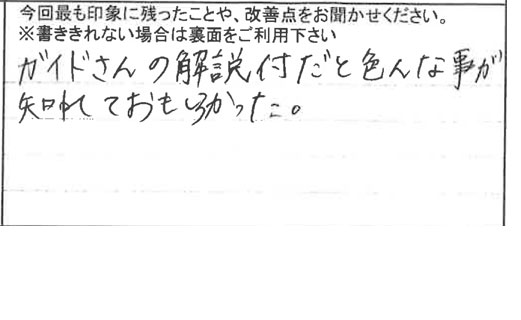 今回最も印象に残ったことや、改善点をお聞かせください。
※書ききれない場合は裏面をご利用下さい
ガイドさんの解説付だと色んな事が
知れておもしろかった。